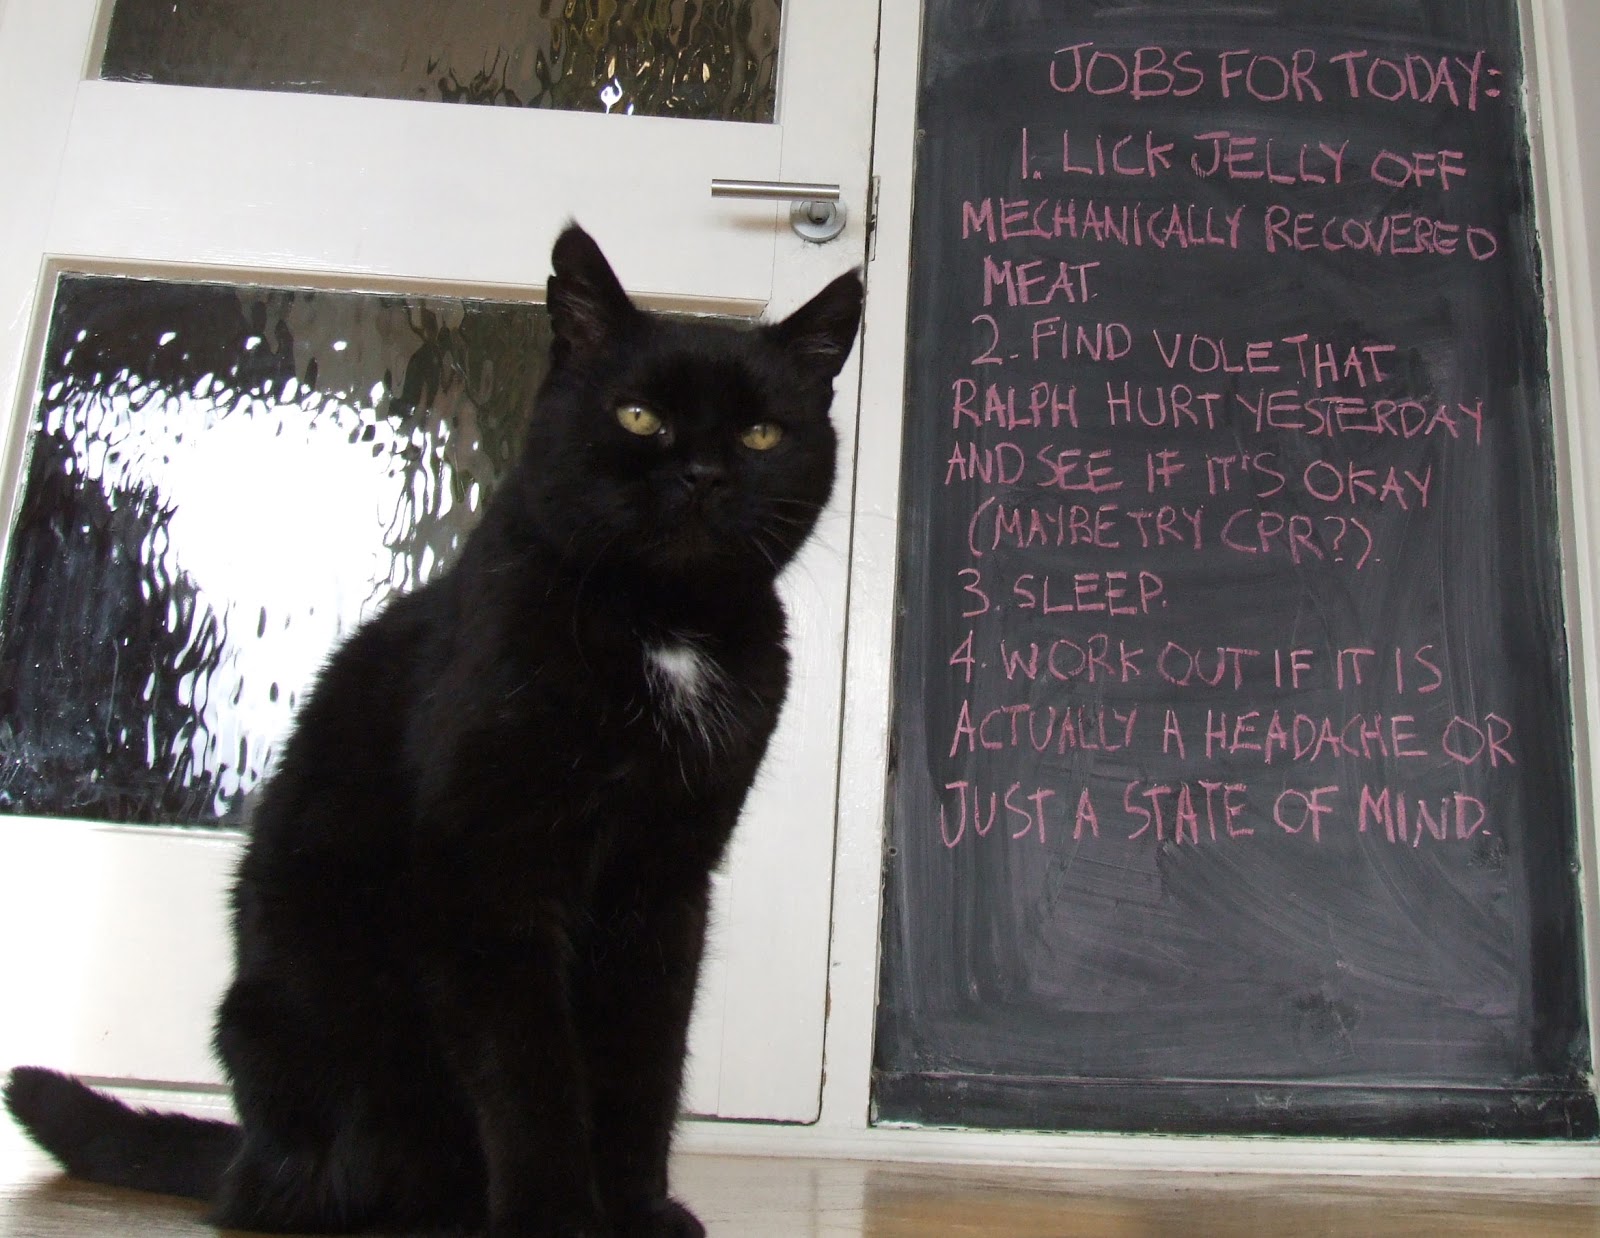 JOBS FOR TODAY:
1. LICK JELLY OFF
MECHANICALLY RECOVERED
MEAT.
2. FIND VOLE THAT
RALPH HURT YESTERDAY
AND SEE IF IT'S OKAY
(MAYBE TRY CPR?).
3. SLEEP.
4. WORK OUT IF IT IS
ACTUALLY A HEADACHE OR
JUST A STATE OF MIND.